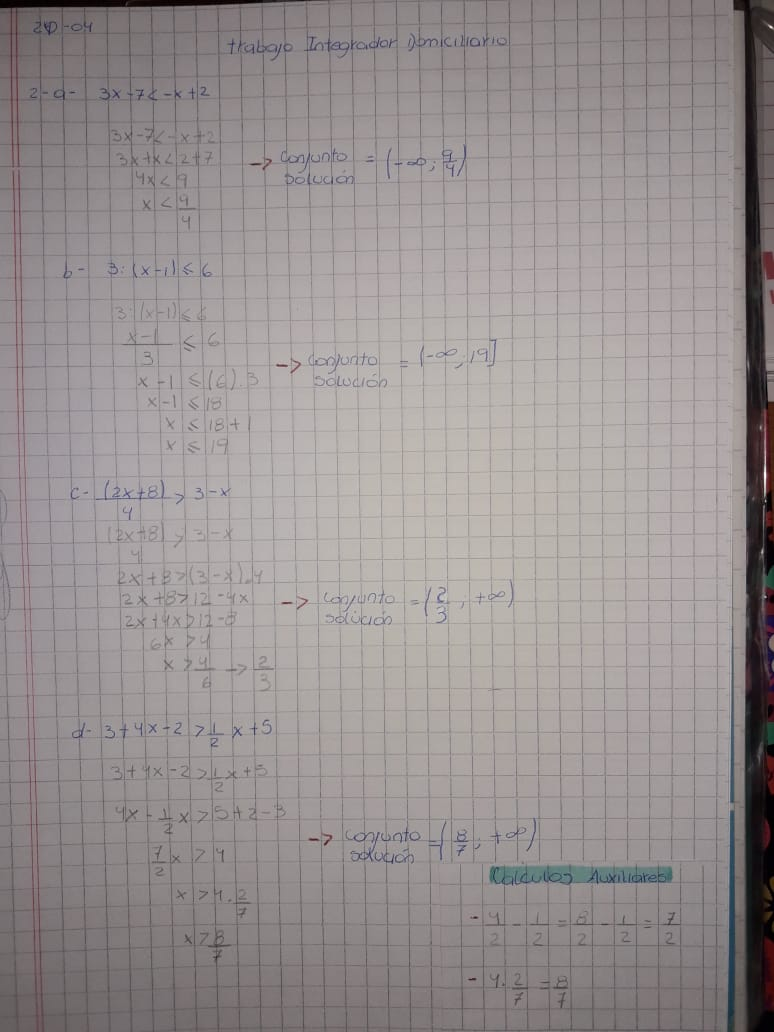 20-04
trabajo Integrador Domiciliario
2-a- 3x-7<-x+2
3x-7<-x+2
3x+x<2+7
4x<9
x<9/4
→ conjunto solución = (-∞; 9/4)
b- 3:(x-1)≤6
3:(x-1)≤6
x-1/3 ≤ 6
x-1 ≤(6).3
x-1≤18
x ≤18+1
x ≤ 19
→ conjunto solución = (-∞; 19]
c- (2x+8)/4 > 3-x
(2x+8)/4 > 3-x
2x+8>(3-x).4
2x+8>12-4x
2x+4x>12-8
6x >4
x > 4/6 → 2/3
→ conjunto solución = (2/3; +∞)
d- 3+4x-2 > 1/2 x+5
3+4x-2 > 1/2 x+5
4x - 1/2 x > 5+2-3
7/2 x > 4
x > 4. 2/7
x > 8/7
→ conjunto solución = (8/7; +∞)
Cálculos Auxiliares
- 4/2 - 1/2 = 8/2 - 1/2 = 7/2
- 4. 2/7 = 8/7